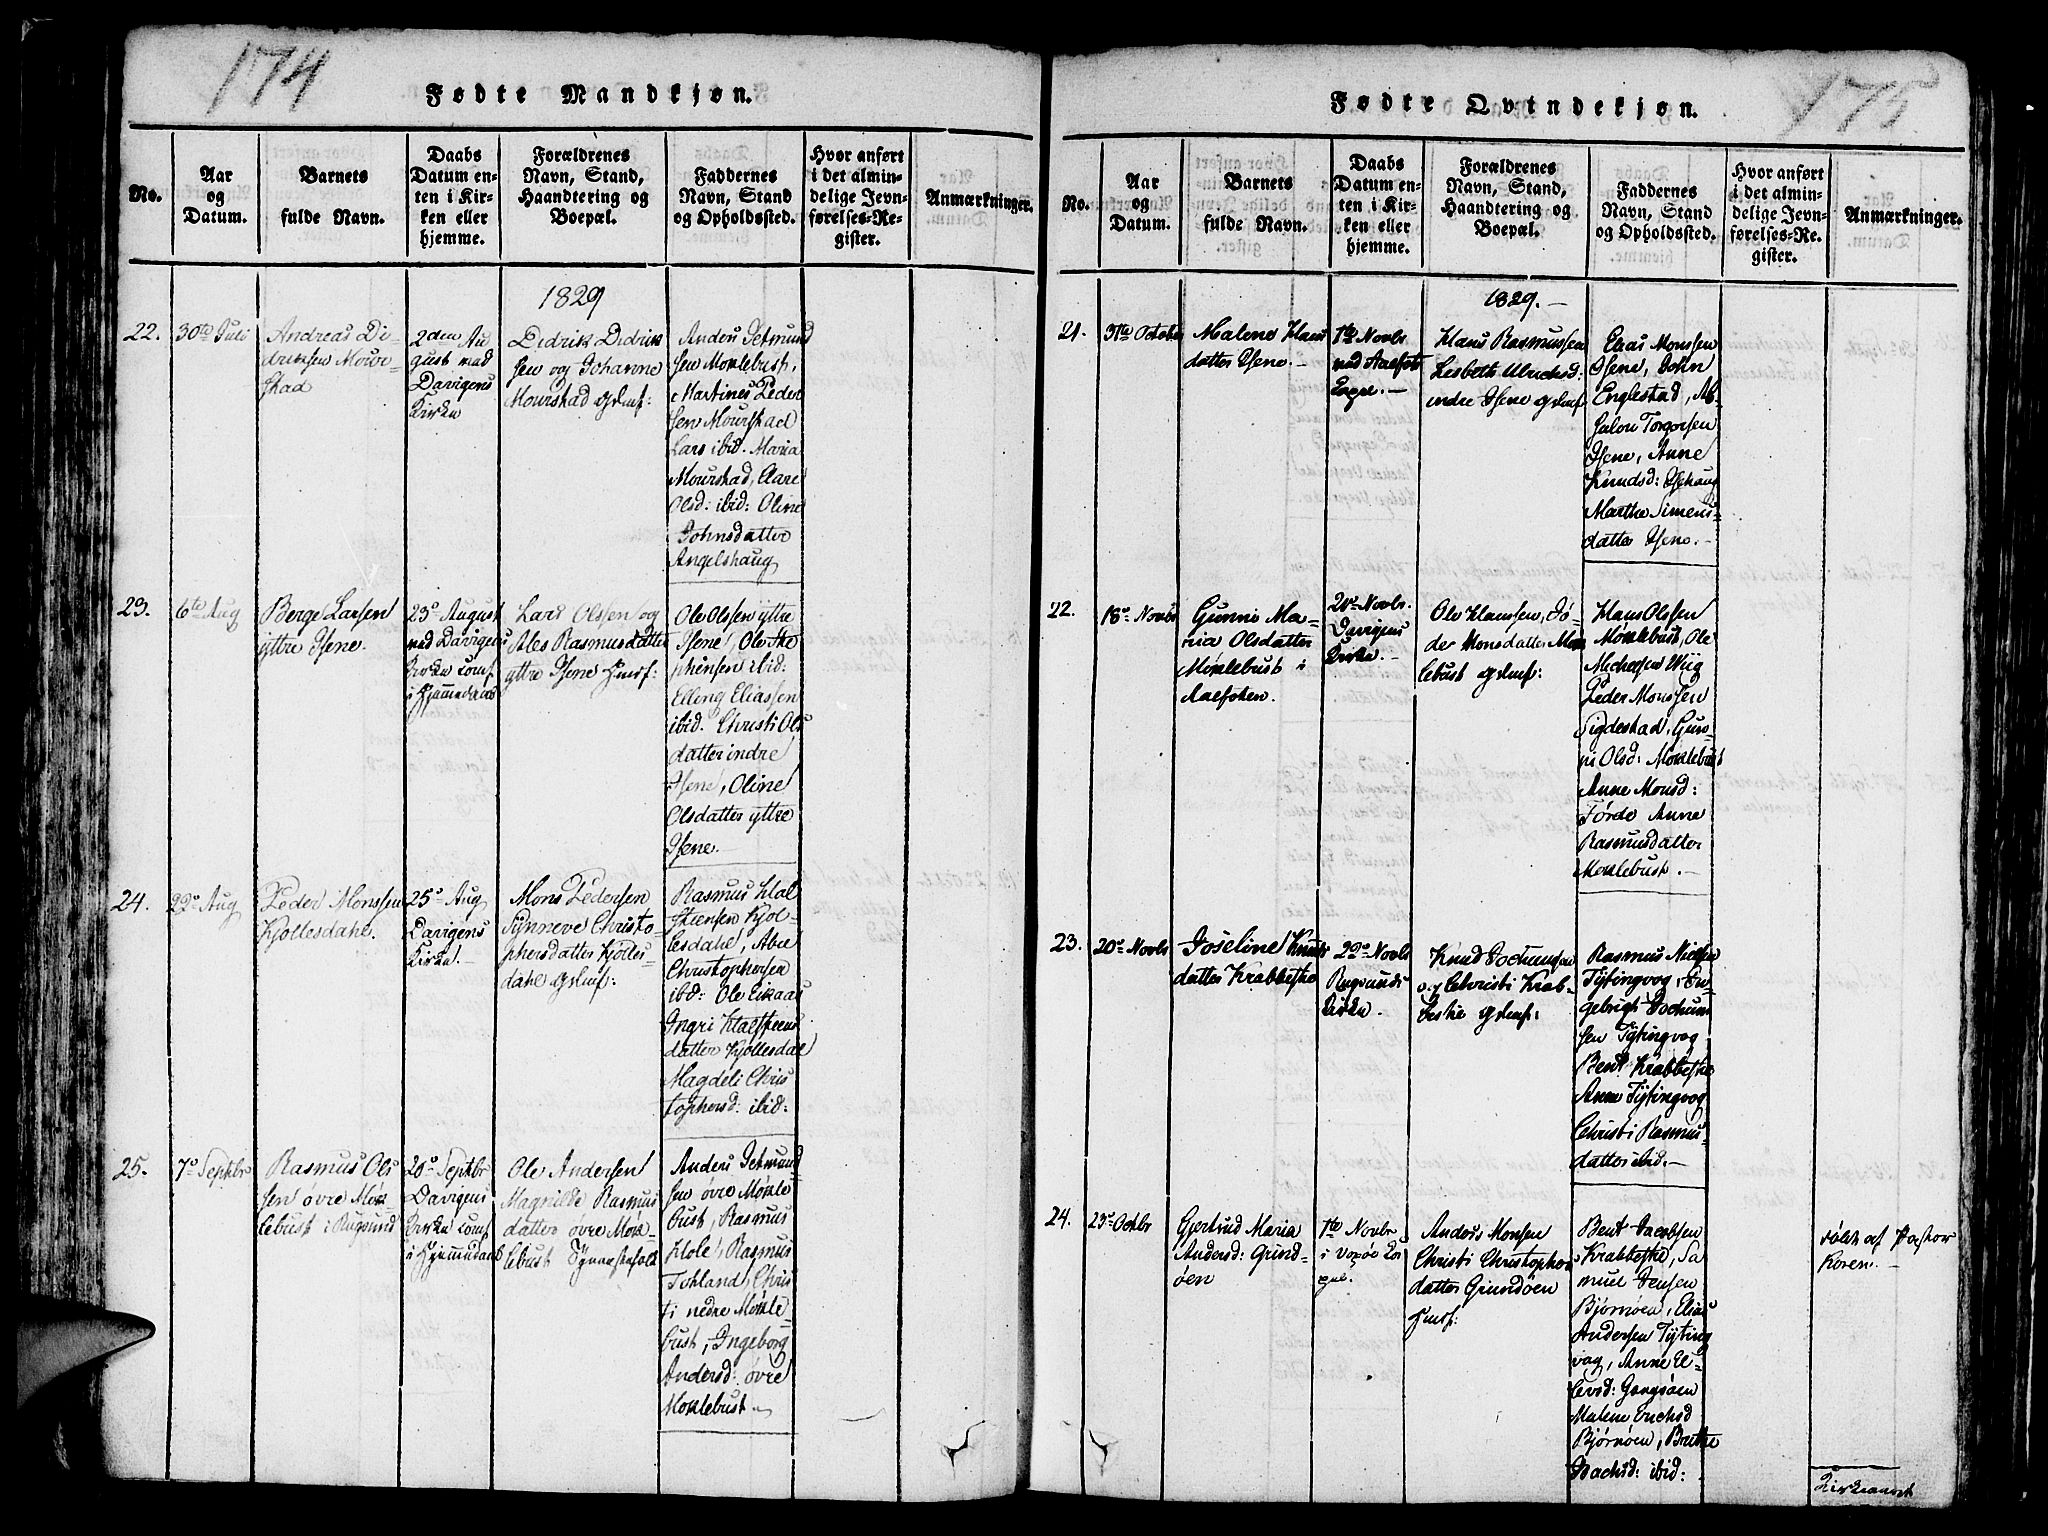 174
Fødte Mandkjøn.
No.
Aar
og
Datum.
Barnets
fulde Navn.
Daabs
Datum en-
ten i Kir-
ken eller
hjemme.
Forældrenes
Navn, Stand,
Haandtering og
Boepæl.
Faddernes
Navn, Stand
og Opholdssted.
Hvor anført
i det almin-
delige Jevn-
førelses-Re-
gister.
Anmærkninger.
1829
22.
30te Juli
Andreas Di-
driksen Mour-
stad
2den Au
gust ved
Davigens
Kirke
Didrik Didrik
sen og Johanne
Mourstad
Anders Jetmund
sen Moklebust,
Martines Peder
sen Mourstad
Lars ibid. Maria
Mourstad,
Olsd: ibid: Oline
Johnsdatter
Angelshaug
23.
6te Aug
Berge Larsen
yttre Isene.
23de August
ved Davigens
Kirke
Lars Olssen og
Ales Rasmusdatter
yttre Isene
Ole Olssen yttre
Isene, Ole Ste
phensen ibid:
Elling Eliassen
ibid. Christi Ols
datter indre
Isene, Oline
Olsdatter yttre
Isene.
24.
22de Aug
Peder Monssen
Kjøllesdahl.
25de Aug
Davigens
Kirke.
Mons Pedersen
Synneve Christo-
phersdatter Kjølles-
dahl
Rasmus Hal
stensen Kjøl-
lesdahl, Abel
Christophersen
ibid: Ole Eikaas
Ingri Halsteens
datter Kjøllesdal
Magdeli Chris
tophersd: ibid:
25.
7de Septbr
Rasmus Ols
sen øvre Møk
lebust i Rugsund
20de Septbr
Davigens
Kirke
Ole Andersen
Magnilde Rasmus
datter øvre Møk-
lebust
Anders Jetmund
sen øvre Møkle
bust, Rasmus
Hole, Rasmus
Tohland, Chris
ti nedre Møkle-
bust, Ingeborg
Andersd: øvre
Moklebust.
175
Fødte Qvindekjøn.
No.
Aar
og
Datum.
Barnets
fulde Navn.
Daabs
Datum en-
ten i Kir-
ken eller
hjemme.
Forældrenes
Navn, Stand,
Haandtering og
Boepæl.
Faddernes
Navn, Stand
og Opholdssted.
Hvor anført
i det almin-
delige Jevn-
førelses-Re-
gister.
Anmærkninger.
1829.
21.
31te October
Malene Hans
datter Isene.
1te Novbr
ved Aalfot
Hans Rasmussen
Lisbeth Ulrichsd:
indre Isene
Elias Monssen
Isene, John
Englestad, Ab-
salon Torgersen
Isene, Anne
Knudsd: Isehaug
Marthe Simens-
datter Isene.
22.
18de Novbr
Gunni Ma-
ria Olsdatter
Møklebust i
Aalfoten.
20de Novbr.
Davigens
Kirke.
Ole Hanssen, Jø-
der Monsdatter Mok
lebust
Hans Olssen
Møklebust, Ole
Michelsen Wiig
Peder Monssen
Sigdestad, Gun-
ni Olsd: Moklebust
Anne Monsd:
Førde Anne
Rasmusdatter
Moklebust.
23.
20de Novbr
Joseline Knuds
datter Krabbestie
22de Novbr
Rugsunds
Kirke.
Knud Jochumsen
og Christi Krab-
bestie
Rasmus Nielsen
Tytingvog, En-
gebrigt Jochum
sen Tytingvog
Bent Krabbestie
Anne Tytingvog
Christi Rasmus-
datter ibid.
24.
23de Octbr
Gjertrud Maria
Andersd: Grind-
øen
1te Novbr
i
Anders Monsen
Christi Christophers
datter Grundøen
Bent Jacobsen
Krabbestie, Sa
muel Jensen
Bjørnøen, Elias
Andersen Tyting
vag, Anne El-
levsd: Gangsøen
Malene Erichsd
Bjørnøen, Brithe
Isachsd: ibid:
døbt af Pastor
Koren.